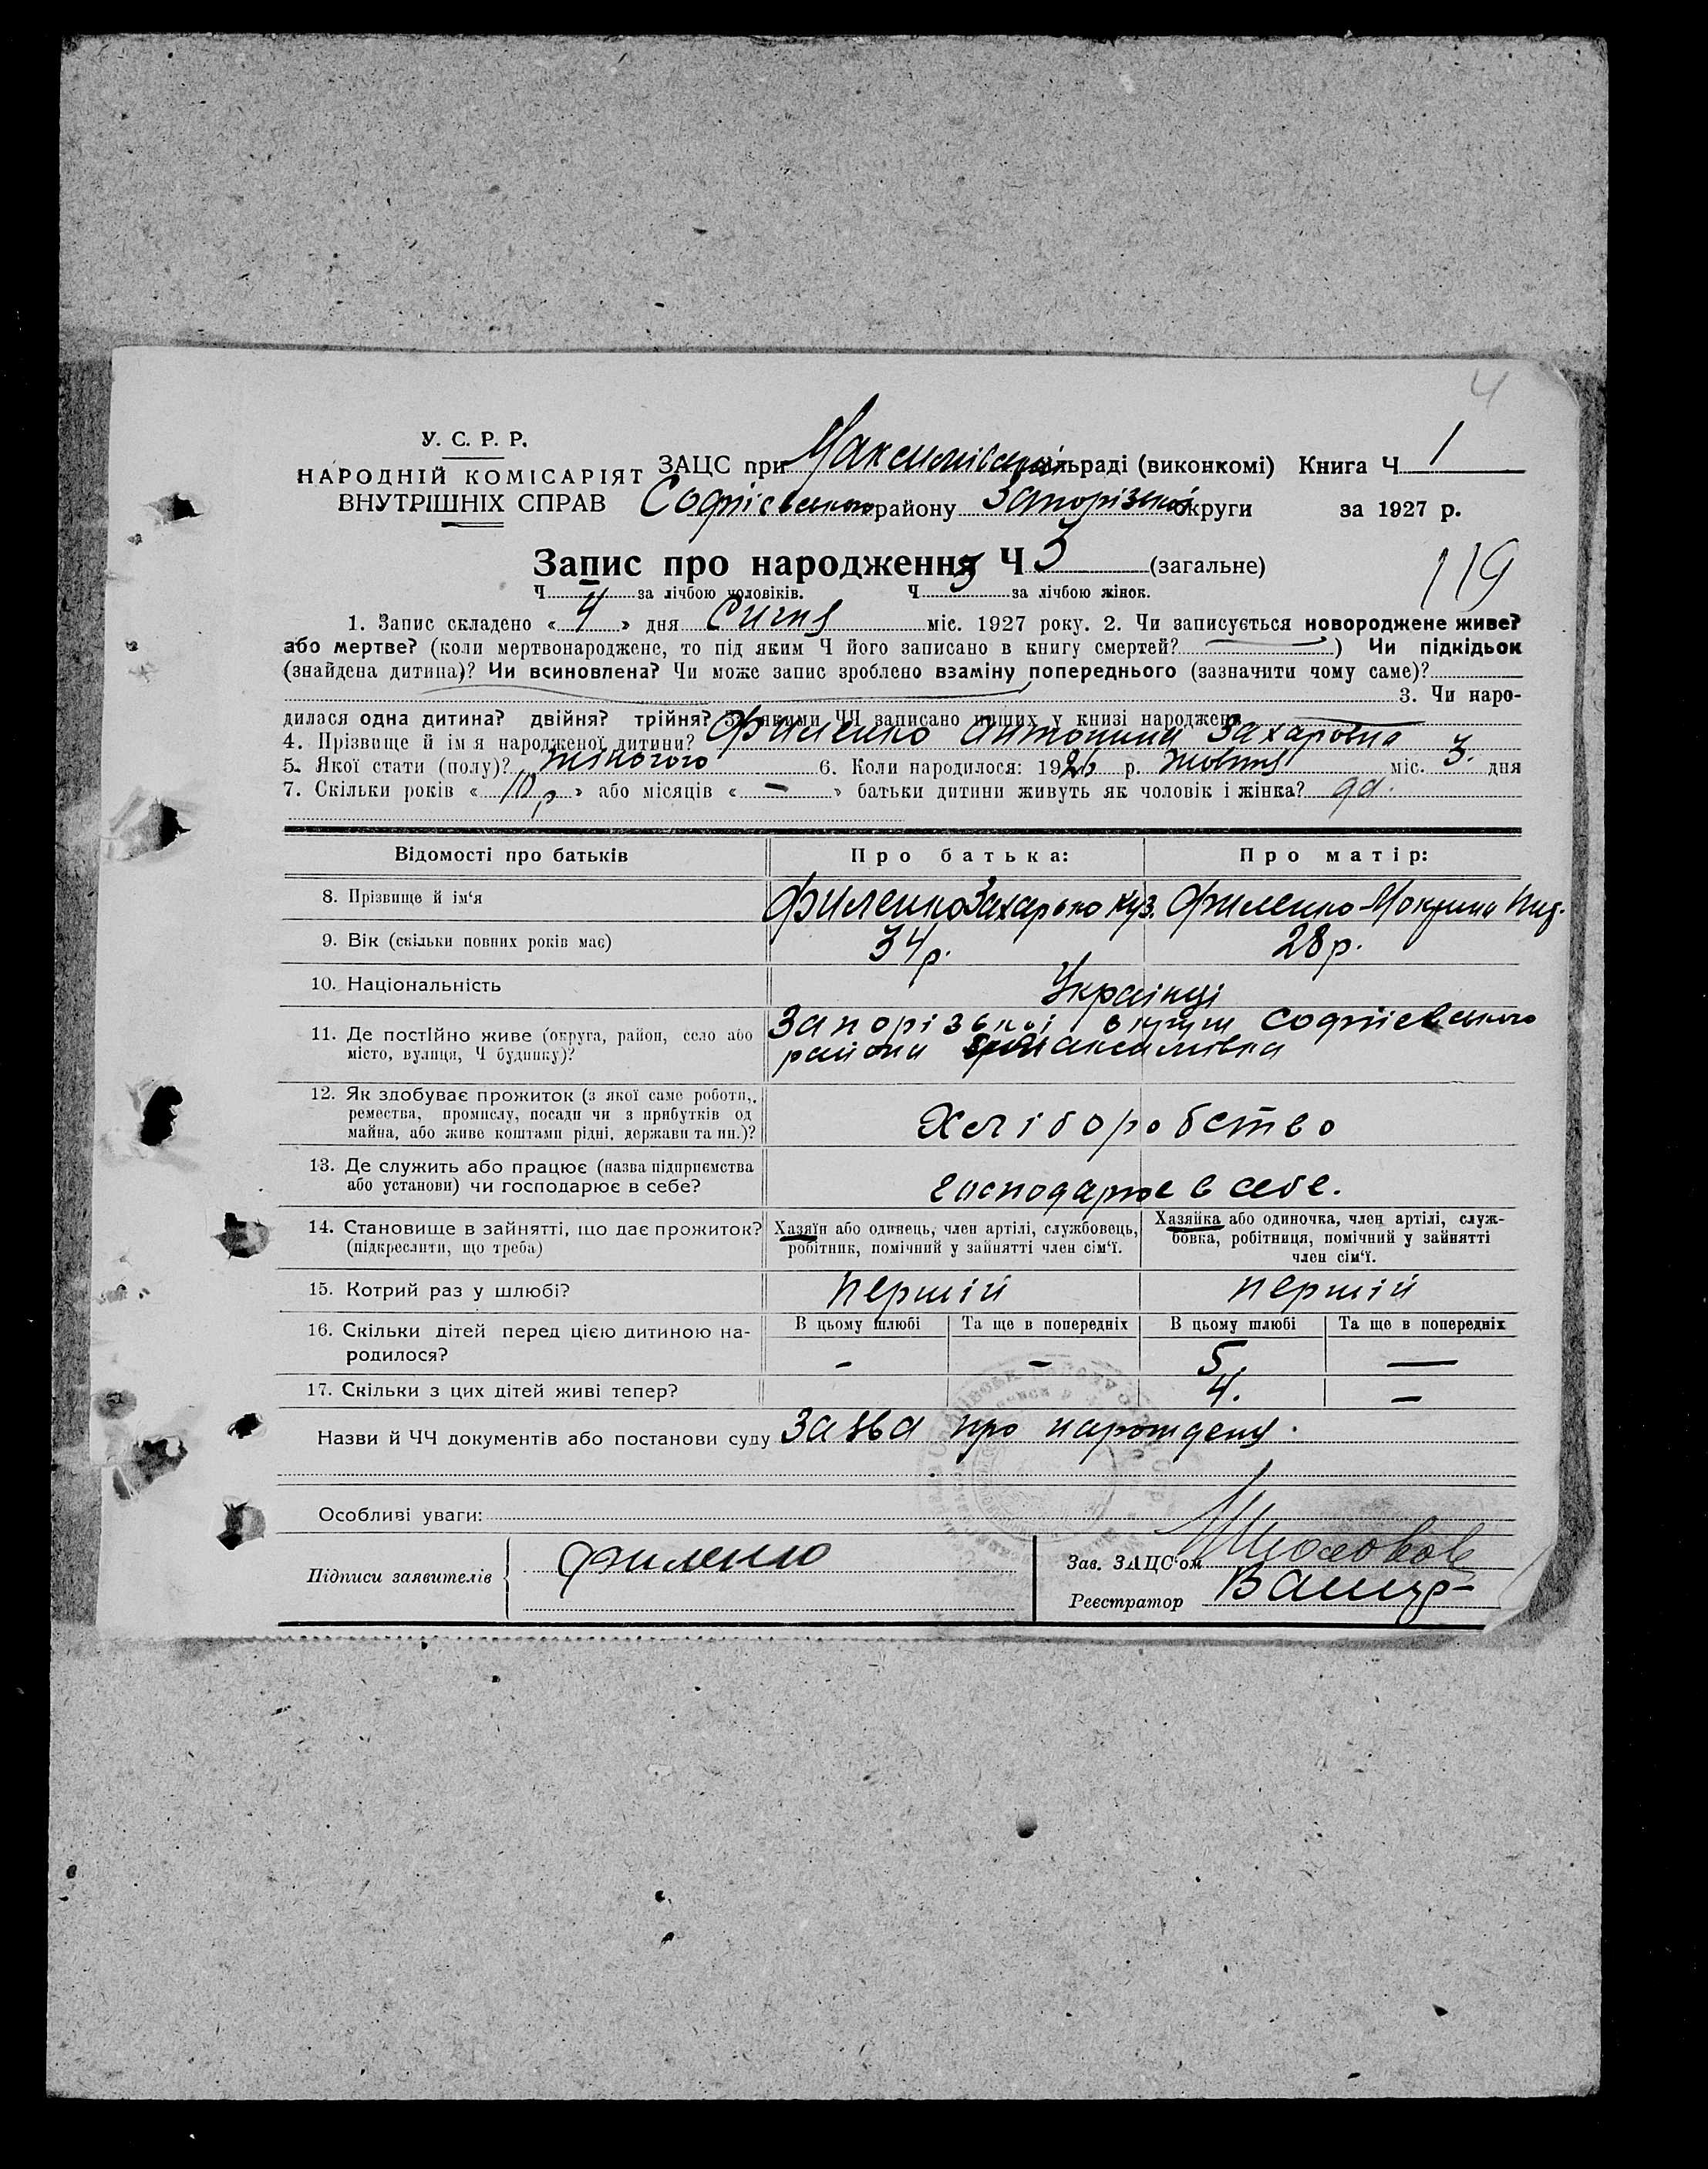 4
У. С. Р. Р.
НАРОДНІЙ КОМІСАРІЯТ
ВНУТРІШНІХ СПРАВ
ЗАЦС при Максимівській сільраді (виконкомі) Книга Ч 1
Софієвського району Запорізької округи за 1927 р.
Запис про народження Ч 3 (загальне)
119
Ч – за лічбою чоловіків. Ч 3 за лічбою жінок.
1. Запис складено « 4 » дня Січня міс. 1927 року. 2. Чи записується новороджене живе?
або мертве? (коли мертвонароджене, то під яким Ч його записано в книгу смертей? ) Чи підкідьок
(знайдена дитина)? Чи всиновлена? Чи може запис зроблено взаміну попереднього (зазначити чому саме)?
3. Чи наро-
дилася одна дитина? двійня? трійня? За якими ЧЧ записано инших у книзі народжень
4. Прізвище й ім'я народженої дитини? Филенко Антонина Захаровна
5. Якої стати (полу)? жіночого 6. Коли народилося: 1926 р. жовтня міс. 3. дня
7. Скільки років « 10 р » або місяців « – » батьки дитини живуть як чоловік і жінка? да.
Відомості про батьків
Про батька:
Про матір:
8. Прізвище й ім'я
Филенко Захарько Куз.
Филенко Мокрина
9. Вік (скільки повних років має)
34 р.
28 р.
10. Національність
Українці
11. Де постійно живе (округа, район, село або
місто, вулиця, Ч будинку)?
Запорізької округи Софиєвського
района Максимівка
12. Як здобуває прожиток (з якої саме роботи,
ремества, промислу, посади чи з прибутків од
майна, або живе коштами рідні, держави та ин.)?
Хліборобство
13. Де служить або працює (назва підприємства
або установи) чи господарює в себе?
господарює в себе.
14. Становище в зайнятті, що дає прожиток?
(підкреслити, що треба)
Хазяїн або одинець, член артілі, службовець,
робітник, помічний у зайнятті член сім'ї.
Хазяйка або одиночка, член артілі, служ-
бовка, робітниця, помічний у зайнятті
член сім'ї.
15. Котрий раз у шлюбі?
першій
першій
16. Скільки дітей перед цією дитиною на-
родилося?
В цьому шлюбі Та ще в попередніх В цьому шлюбі Та ще в попередніх
– – 5 —
17. Скільки з цих дітей живі тепер?
4. –
Назви й ЧЧ документів або постанови суду Заява про народженя.
Особливі уваги:
Підписи заявителів
Филенко
Зав. ЗАЦС'ом
Реєстратор